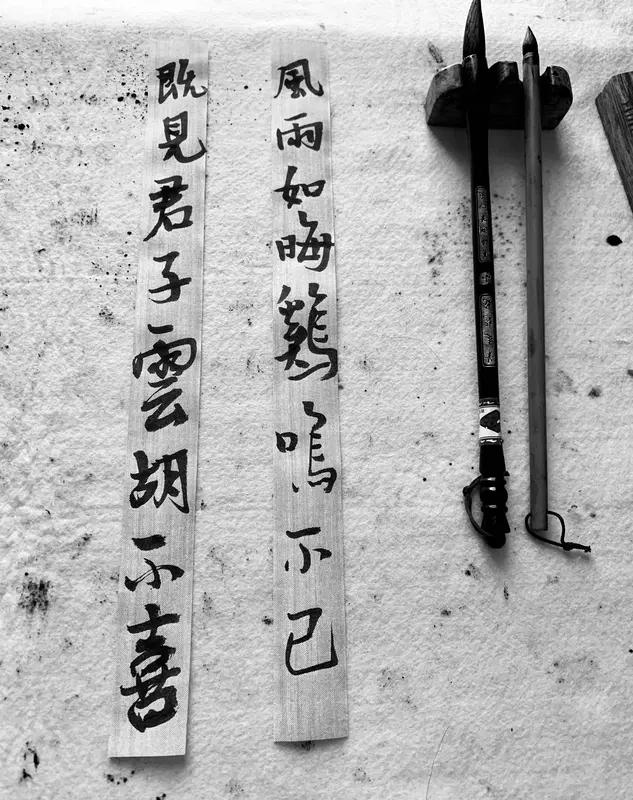 風雨如晦鷄鳴不已
既見君子雲胡不喜